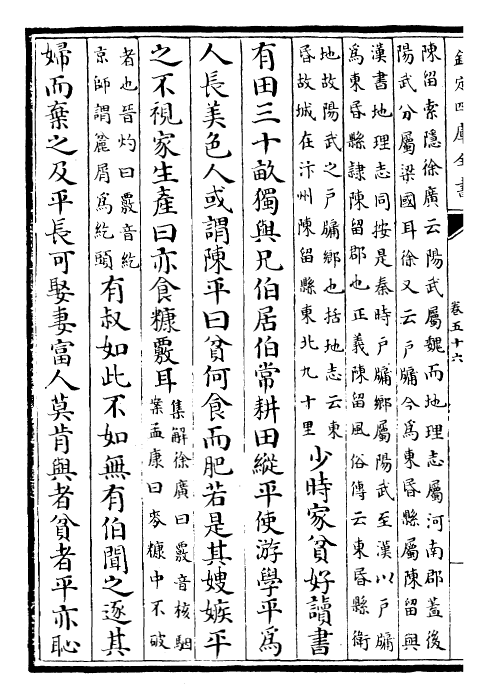 欽定四庫全書
卷五十六
陳留索隱徐廣云陽武屬魏而地理志屬河南郡蓋後
陽武分屬梁國耳徐又云户牖今為東昏縣屬陳留與
漢書地理志同按是秦時户牖鄉屬陽武至漢以户牖
為東昏縣隸陳留郡也正義陳留風俗傳云東昏縣衛
地故陽武之户牖鄉也括地志云東
昏故城在汴州陳留縣東北九十里
少時家貧好讀書
有田三十畝獨與兄伯居伯常耕田縱平使游學平為
人長美色人或謂陳平曰貧何食而肥若是其嫂嫉平
之不視家生產曰亦食糠覈耳
集解徐廣曰覈音核駰
案孟康曰麥糠中不破
者也晉灼曰覈音紇
京師謂麤屑為紇頭
有叔如此不如無有伯聞之逐其
婦而棄之及平長可娶妻富人莫肯與者貧者平亦恥